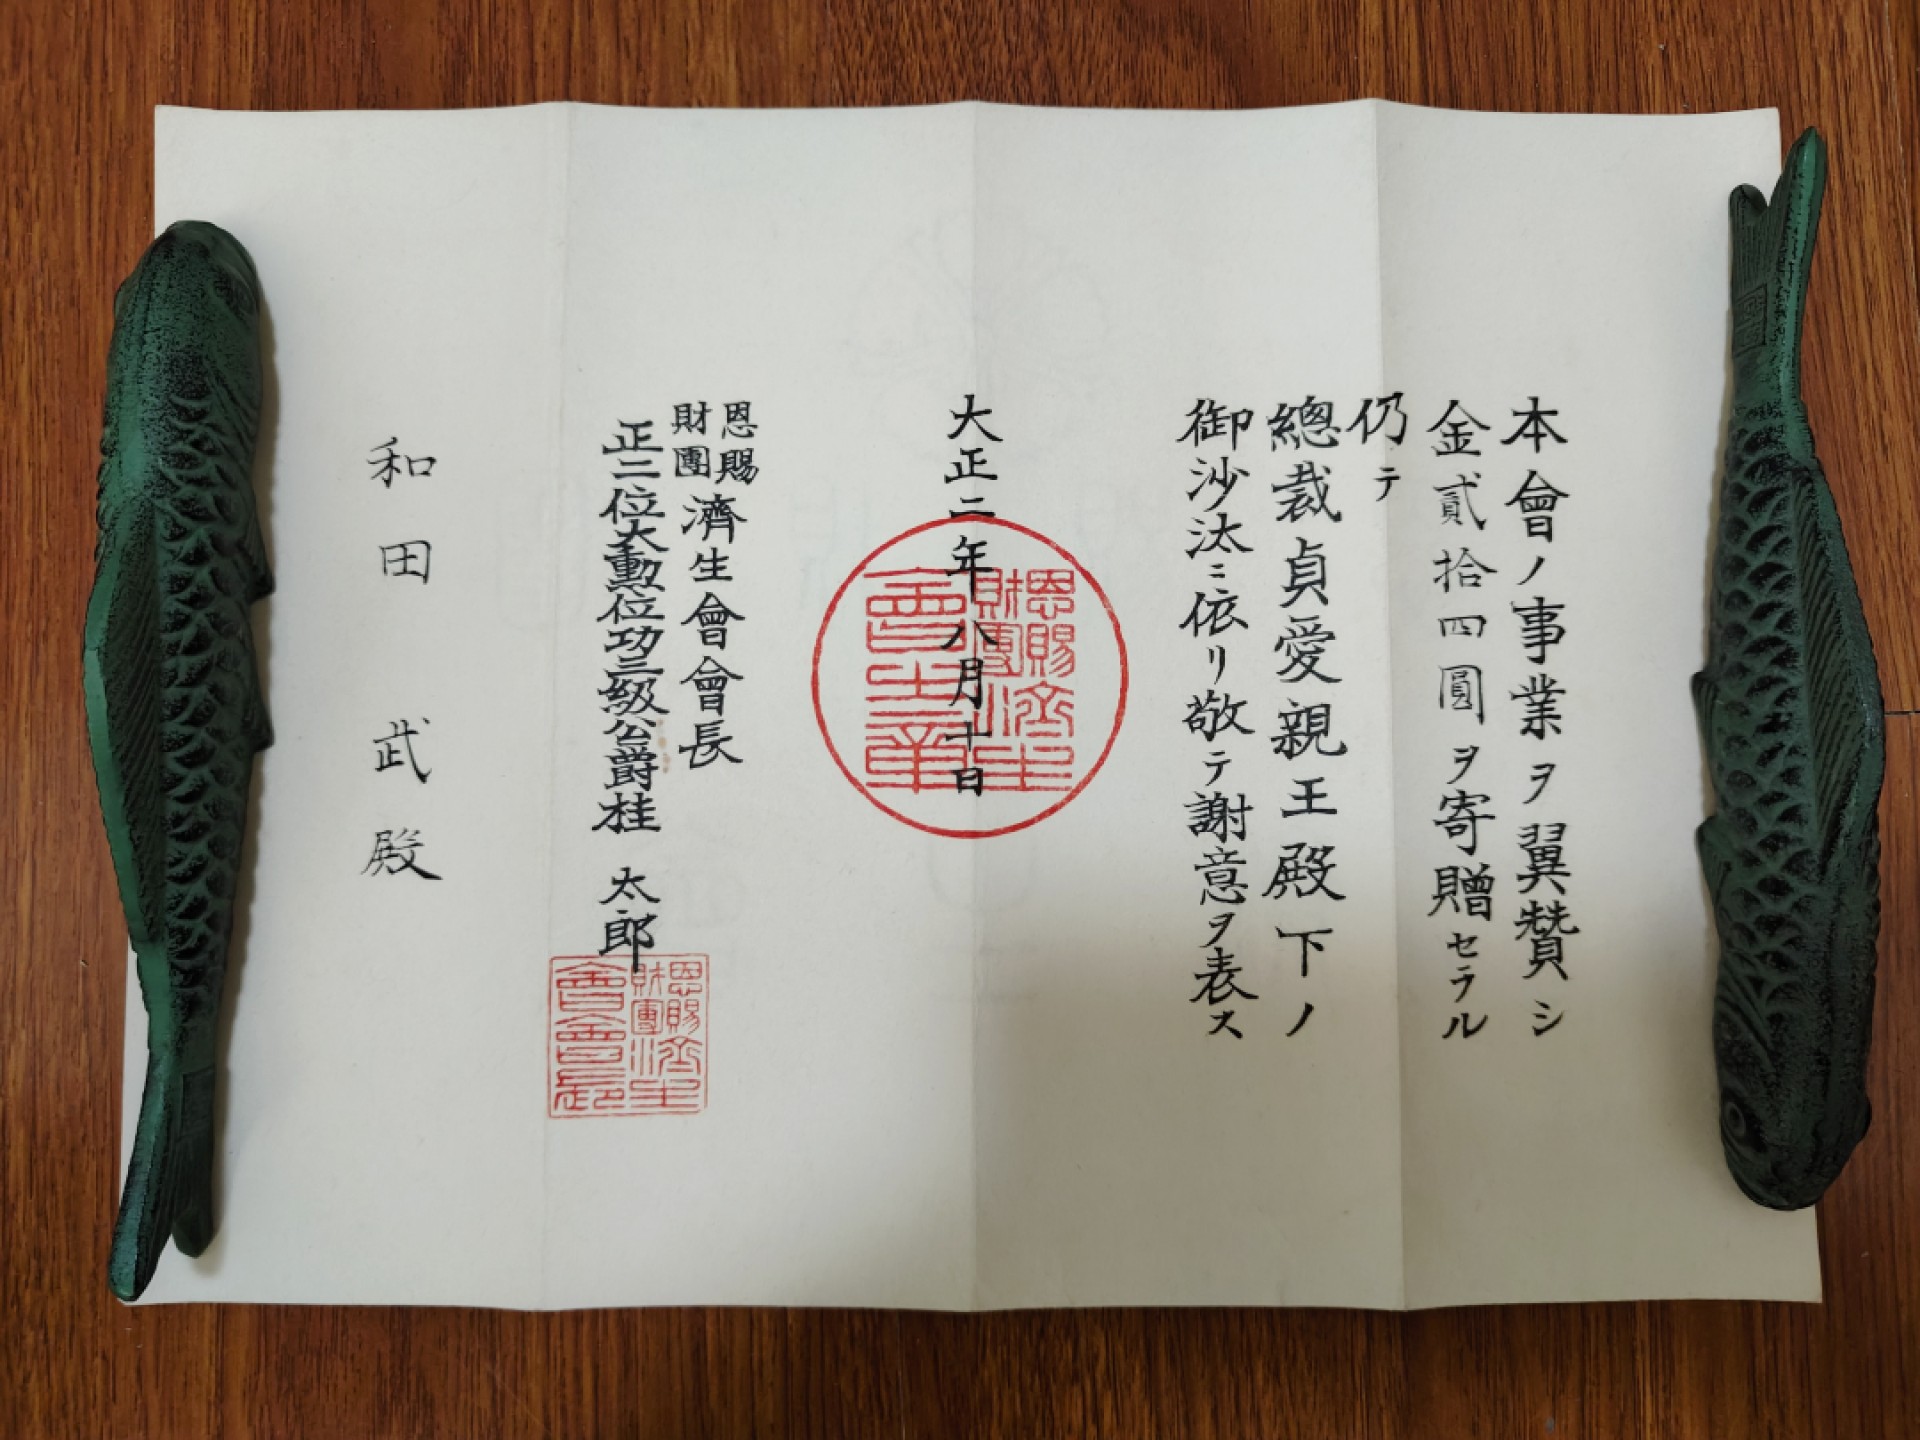 本會ノ事業ヲ翼贊シ
金貳拾四圓ヲ寄贈セラル
仍テ
總裁貞愛親王殿下ノ
御沙汰ニ依リ敬テ謝意ヲ表ス
大正二年八月十日
恩賜
財團
濟生會會長
正二位大勲位功三級公爵桂 太郎
和田 武殿
恩賜
財團
濟生
會生章
恩賜
財團
濟生
會會長印